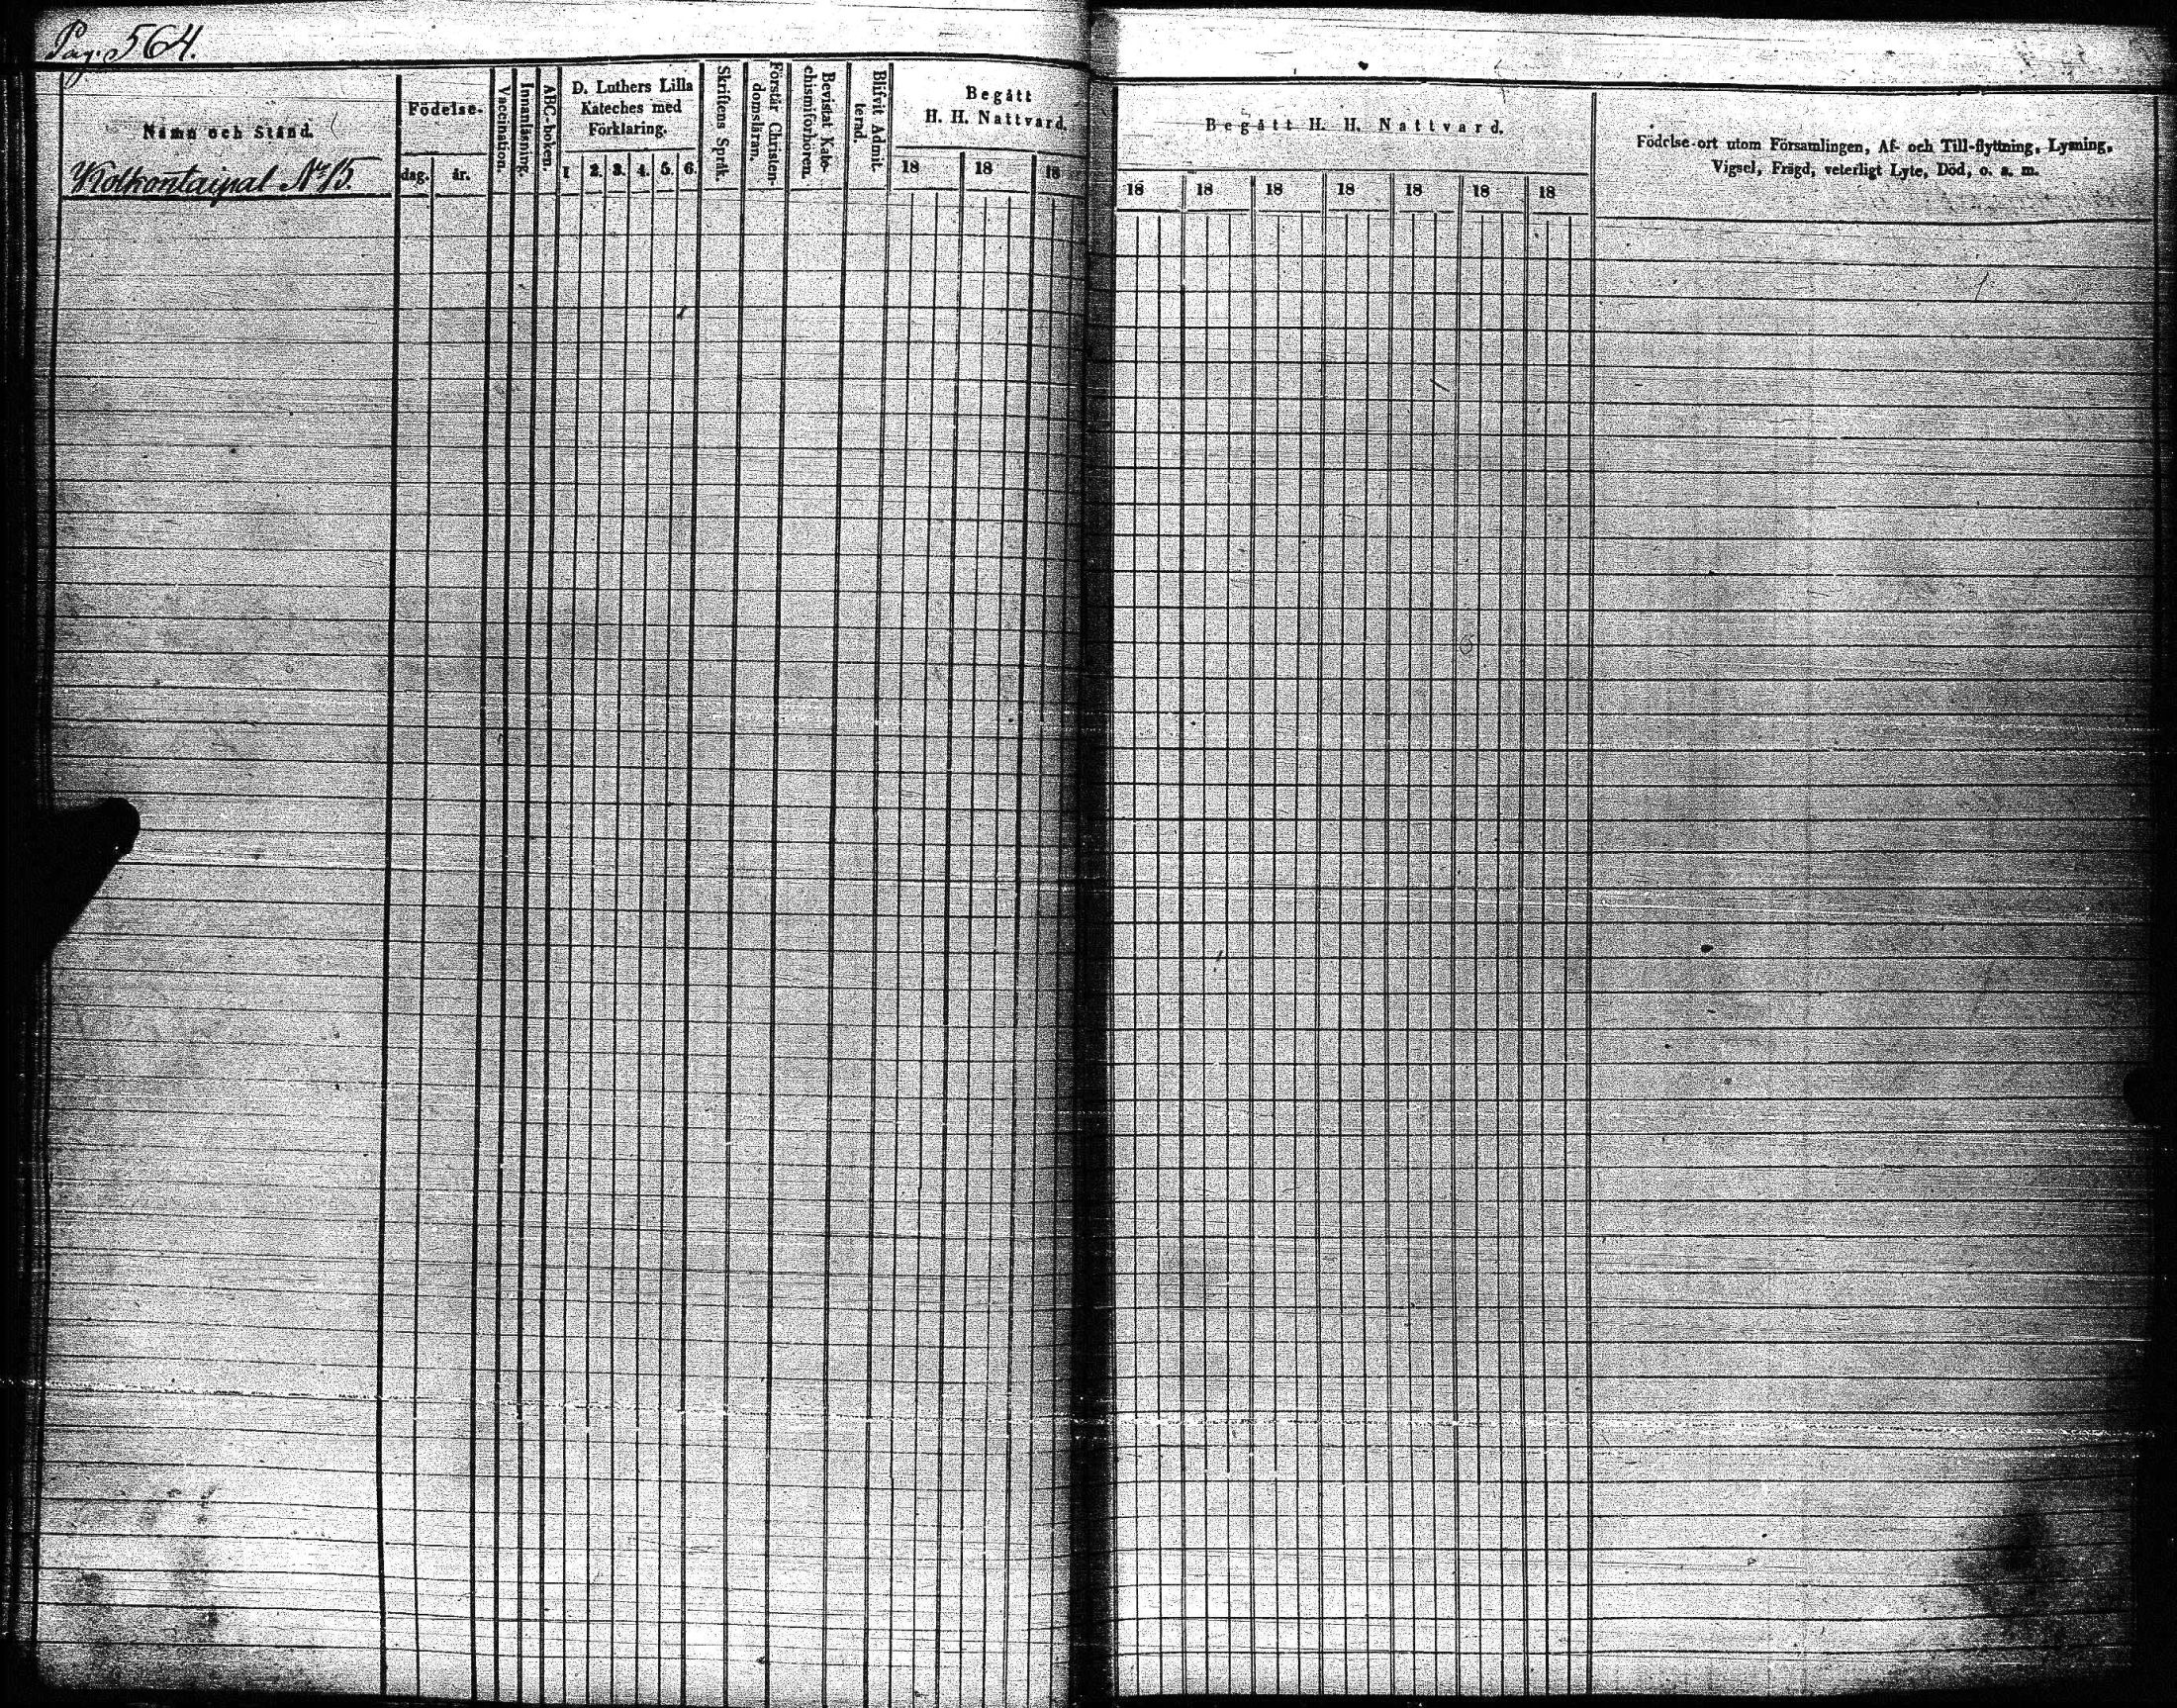 Pag. 564.
Namn och Stånd.
Kolkontaipal No 15.
Födelse-
dag.
år.
Vaccination.
Innanläsning.
ABC-boken.
D. Luthers Lilla
Kateches med
Förklaring.
1 2. 3. 4. 5. 6.
Skriftens Språk.
Förstår Christen-
domsläran.
Bevistat Kate-
chismiförhören.
Blifvit Admit-
terad.
Begått
H. H. Nattvard.
18 18 18
Begått H. H. Nattvard.
18 18 18 18 18 18 18
Födelse-ort utom Församlingen, Af- och Till-flyttning, Lysning,
Vigsel, Frägd, veterligt Lyte, Död, o. s. m.